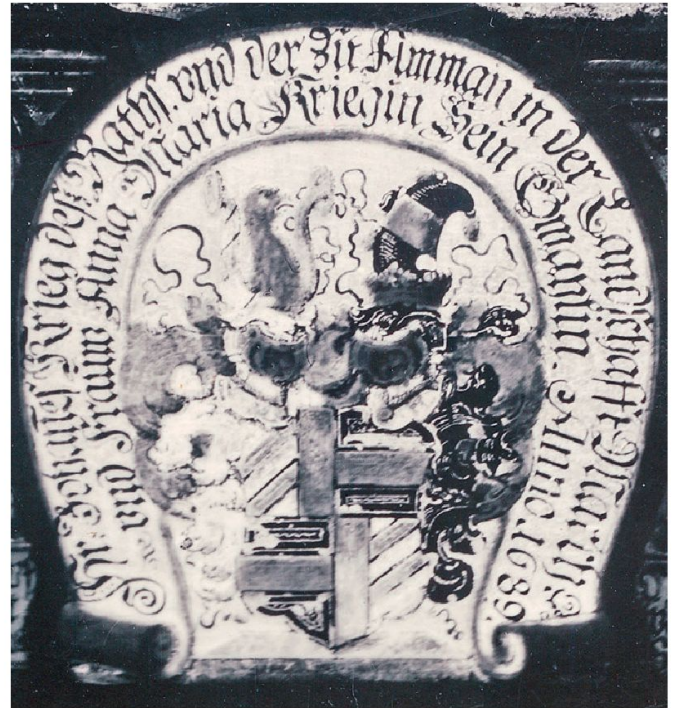 Hr. Johañes Krieg deß Raths. vnd der Zit Amman in der Landschafft March.
vnd Frauw Anna Maria Kriegin Sein Emahlin. Anno. 1689.